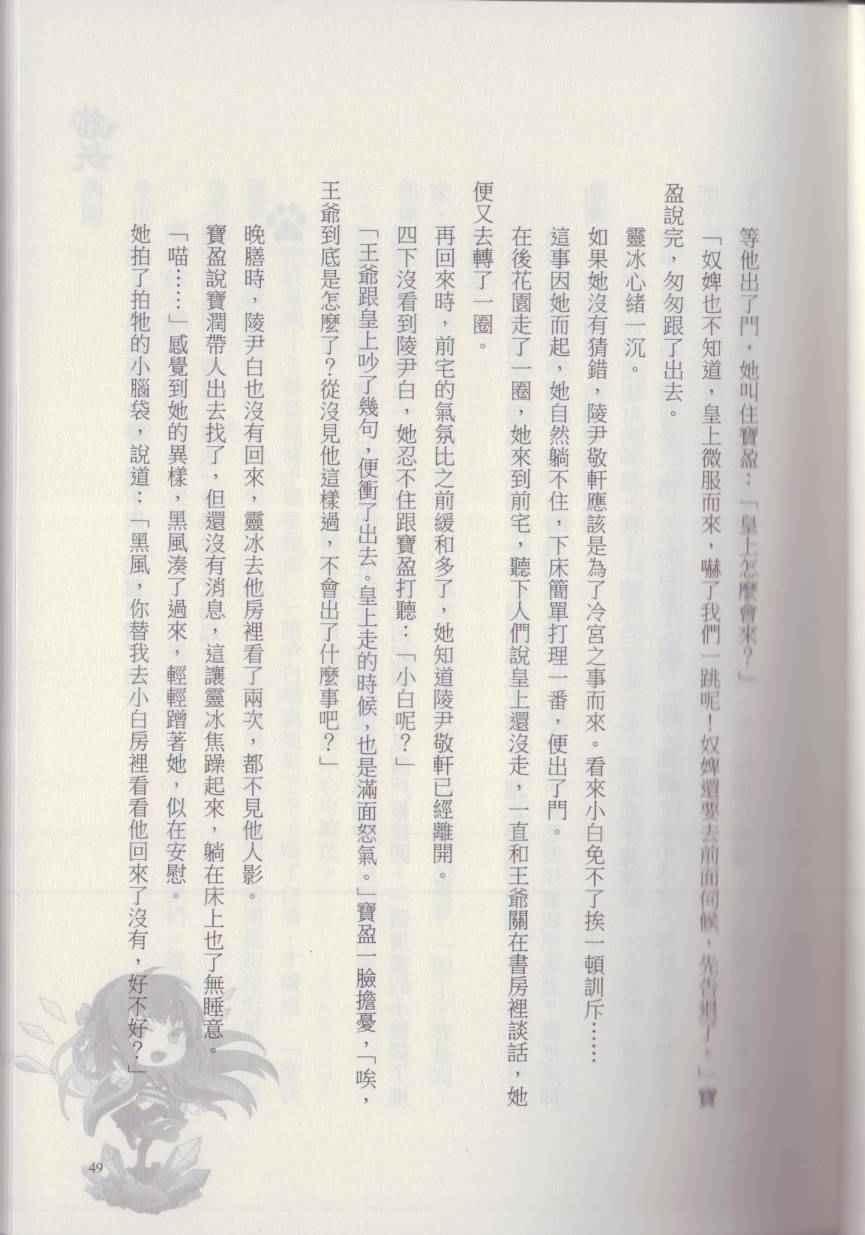 等他出了門，她叫住寶盈：「皇上怎麼會來？」
「奴婢也不知道，皇上微服而來，嚇了我們一跳呢！奴婢還要去前面伺候，先告退了。」寶
盈說完，匆匆跟了出去。
靈冰心緒一沉。
如果她沒有猜錯，陵尹敬軒應該是為了冷宮之事而來。看來小白免不了挨一頓訓斥……
這事因她而起，她自然躺不住，下床簡單打理一番，便出了門。
在後花園走了一圈，她來到前宅，聽下人們說皇上還沒走，一直和王爺關在書房裡談話，她
便又去轉了一圈。
再回來時，前宅的氣氛比之前緩和多了，她知道陵尹敬軒已經離開。
四下沒看到陵尹白，她忍不住跟寶盈打聽：「小白呢？」
「王爺跟皇上吵了幾句，便衝了出去。皇上走的時候，也是滿面怒氣。」寶盈一臉擔憂，「唉，
王爺到底是怎麼了？從沒見他這樣過，不會出了什麼事吧？」
晚膳時，陵尹白也沒有回來，靈冰去他房裡看了兩次，都不見他人影。
寶盈說寶潤帶人出去找了，但還沒有消息，這讓靈冰焦躁起來，躺在床上也了無睡意。
「喵……」感覺到她的異樣，黑風湊了過來，輕輕蹭著她，似在安慰。
她拍了拍牠的小腦袋，說道：「黑風，你替我去小白房裡看看他回來了沒有，好不好？」
49